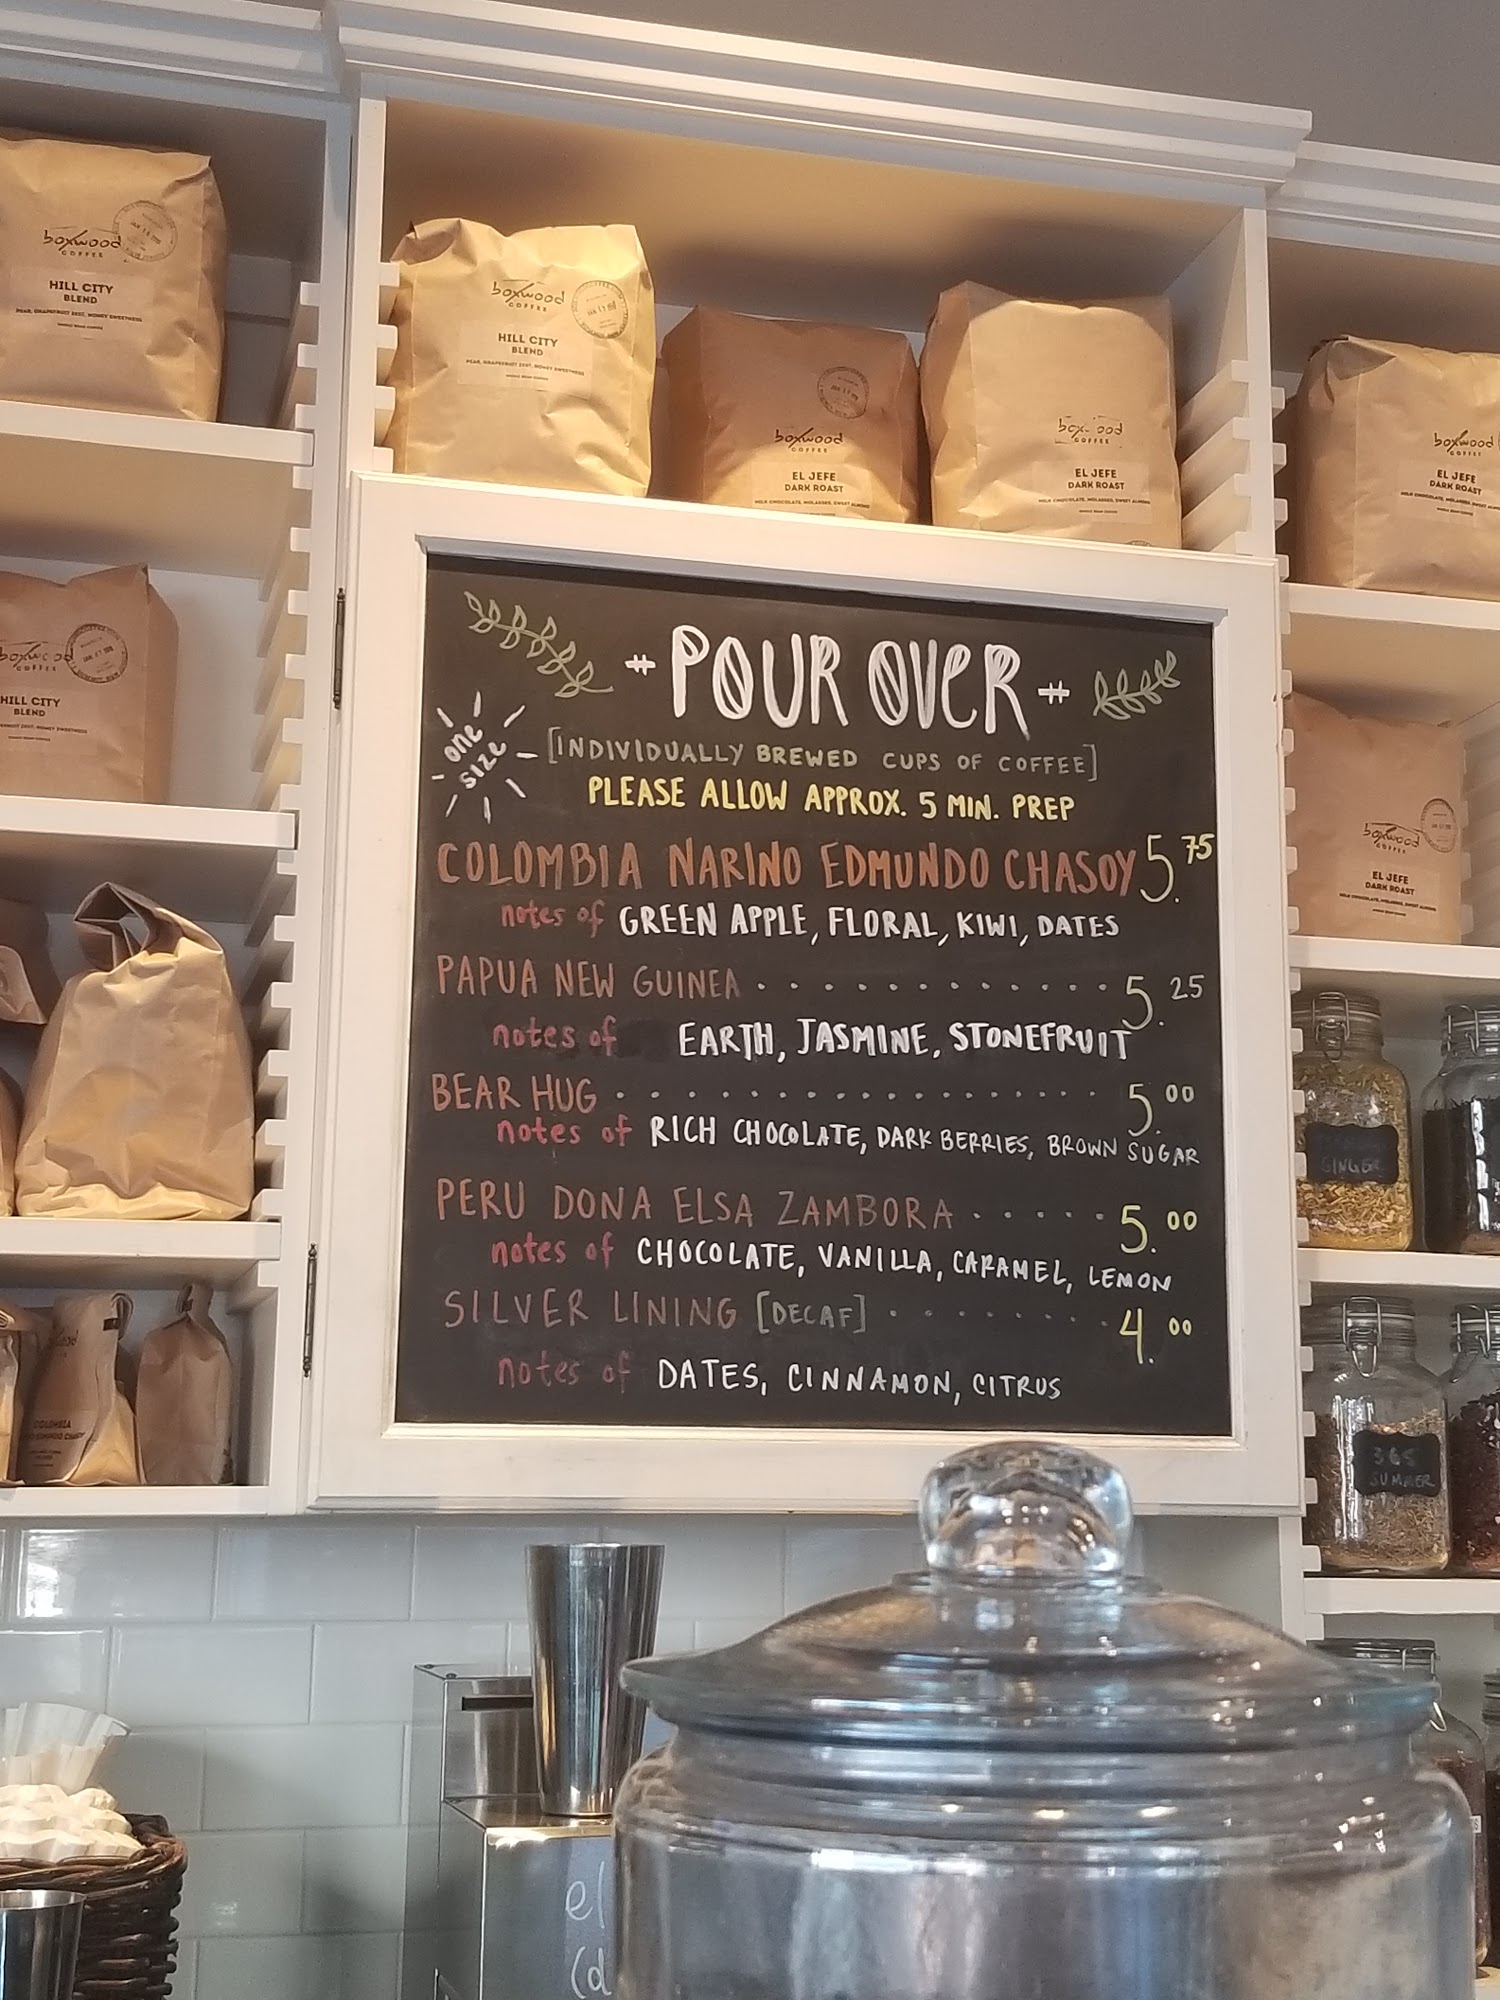 boxwood
COFFEE
HILL CITY
BLEND
PEAR, GRAPEFRUIT ZEST, HONEY SWEETNESS
WHOLE BEAN COFFEE
boxwood
COFFEE
HILL CITY
BLEND
PEAR, GRAPEFRUIT ZEST, HONEY SWEETNESS
WHOLE BEAN COFFEE
boxwood
COFFEE
EL JEFE
DARK ROAST
MILK CHOCOLATE, MOLASSES, SWEET ALMOND
COFFEE
EL JEFE
DARK ROAST
MILK CHOCOLATE, MOLASSES, SWEET ALMOND
boxwood
COFFEE
EL JEFE
DARK ROAST
MILK CHOCOLATE, MOLASSES, SWEET
COFFEE
HILL CITY
BLEND
boxwood
COFFEE
EL JEFE
DARK ROAST
MILK CHOCOLATE, MOLASSES, SWEET ALMOND
POUR OVER
one
size
[INDIVIDUALLY BREWED CUPS OF COFFEE]
PLEASE ALLOW APPROX. 5 MIN. PREP
COLOMBIA NARINO EDMUNDO CHASOY 5.75
notes of GREEN APPLE, FLORAL, KIWI, DATES
PAPUA NEW GUINEA . . . . . . . . . . . . . 5.25
notes of EARTH, JASMINE, STONEFRUIT
BEAR HUG . . . . . . . . . . . . . . . . . . 5.00
notes of RICH CHOCOLATE, DARK BERRIES, BROWN SUGAR
PERU DONA ELSA ZAMBORA . . . . . 5.00
notes of CHOCOLATE, VANILLA, CARAMEL, LEMON
SILVER LINING [DECAF] . . . . . . . . 4.00
notes of DATES, CINNAMON, CITRUS
GINGER
365
SUMMER
COLOMBIA
el
(d